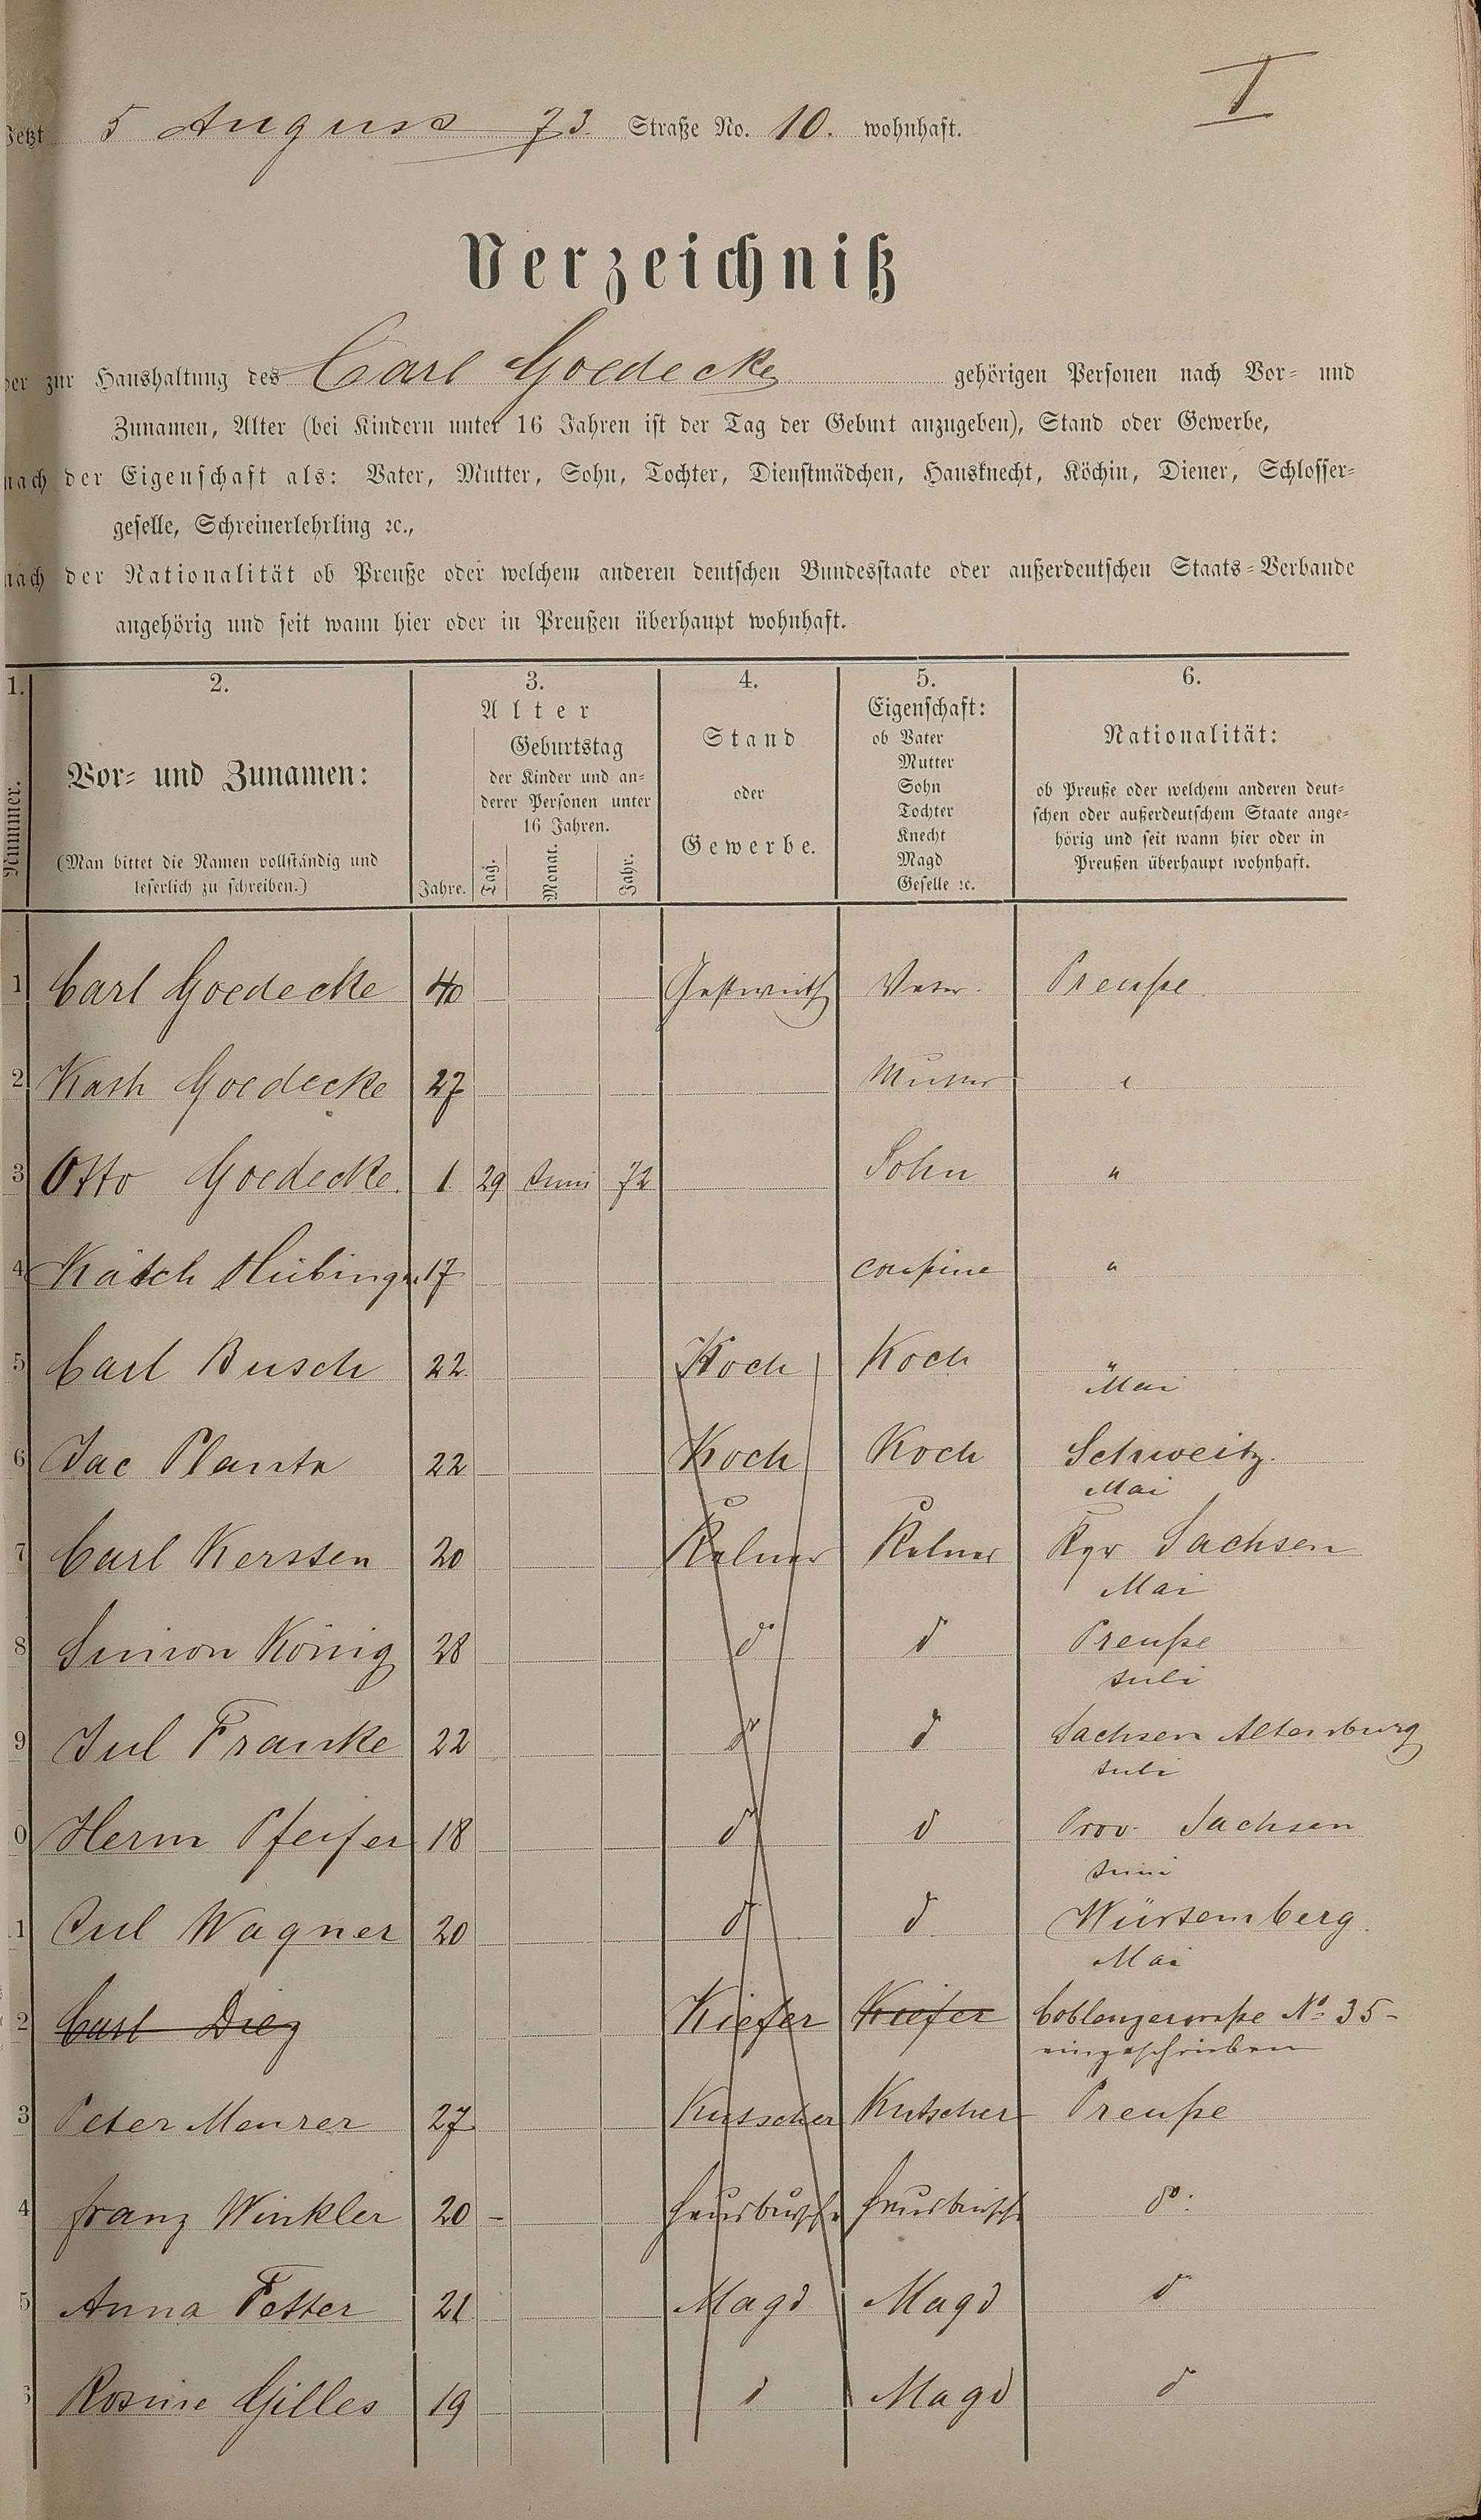 I
Jetzt 5 August 73. Straße No. 10. wohnhaft.
Verzeichniß
der zur Haushaltung des Carl Goedecke gehörigen Personen nach Vor- und
Zunamen, Alter (bei Kindern unter 16 Jahren ist der Tag der Geburt anzugeben), Stand oder Gewerbe,
nach der Eigenschaft als: Vater, Mutter, Sohn, Tochter, Dienstmädchen, Hausknecht, Köchin, Diener, Schlosser-
geselle, Schreinerlehrling ꝛc.,
nach der Nationalität ob Preuße oder welchem anderen deutschen Bundesstaate oder außerdeutschen Staats-Verbande
angehörig und seit wann hier oder in Preußen überhaupt wohnhaft.
1.
Nummer.
2.
Vor- und Zunamen:
(Man bittet die Namen vollständig und
leserlich zu schreiben.)
3.
Alter
Jahre.
Geburtstag
der Kinder und an-
derer Personen unter
16 Jahren.
Tag. Monat. Jahr.
4.
Stand
oder
Gewerbe.
5.
Eigenschaft:
ob Vater
Mutter
Sohn
Tochter
Knecht
Magd
Geselle ꝛc.
6.
Nationalität:
ob Preuße oder welchem anderen deut-
schen oder außerdeutschem Staate ange-
hörig und seit wann hier oder in
Preußen überhaupt wohnhaft.
1 Carl Goedecke 40 Gastwirth Vater. Preuße
2 Kath Goedecke 27 Mutter "
3 Otto Goedecke 1 29 Juni 72 Sohn "
4 Käth Hübinger 17 cousine "
5 Carl Busch 22 Koch Koch "
Mai
6 Jac Planta 22 Koch Koch Schweitz.
Mai
7 Carl Kersten 20 Kelner Kelner Kgr Sachsen
Mai
8 Simon König 28 do do Preuße
Juli
9 Jul Franke 22 do do Sachsen Altenburg
Juli
0 Herm Pfeifer 18 do do Prov. Sachsen
Juni
1 Jul Wagner 20 do do Würtemberg
Mai
2 Carl Diez Kiefer Kiefer Coblenzerstraße No 35-
eingeschrieben
3 Peter Meurer 27 Kutscher Kutscher Preuße
4 Franz Winkler 20 - Hausbursche Hausbursche do.
5 Anna Fetter 21 Magd Magd do
Rosine Gilles 19 do Magd do